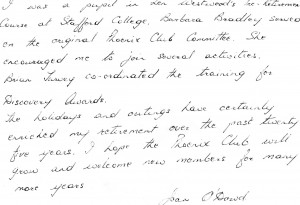 I was a pupil in Len Westwood's Pre-Retirement
Course at Stafford College. Barbara Bradley served
on the original Phoenix Club Committee. She
encouraged me to join several activities.
Brian Turvey co-ordinated the training for
Discovery Awards.
The holidays and outings have certainly
enriched my retirement over the past twenty
five years. I hope the Phoenix Club will
grow and welcome new members for many
more years
Joan O'Dowd